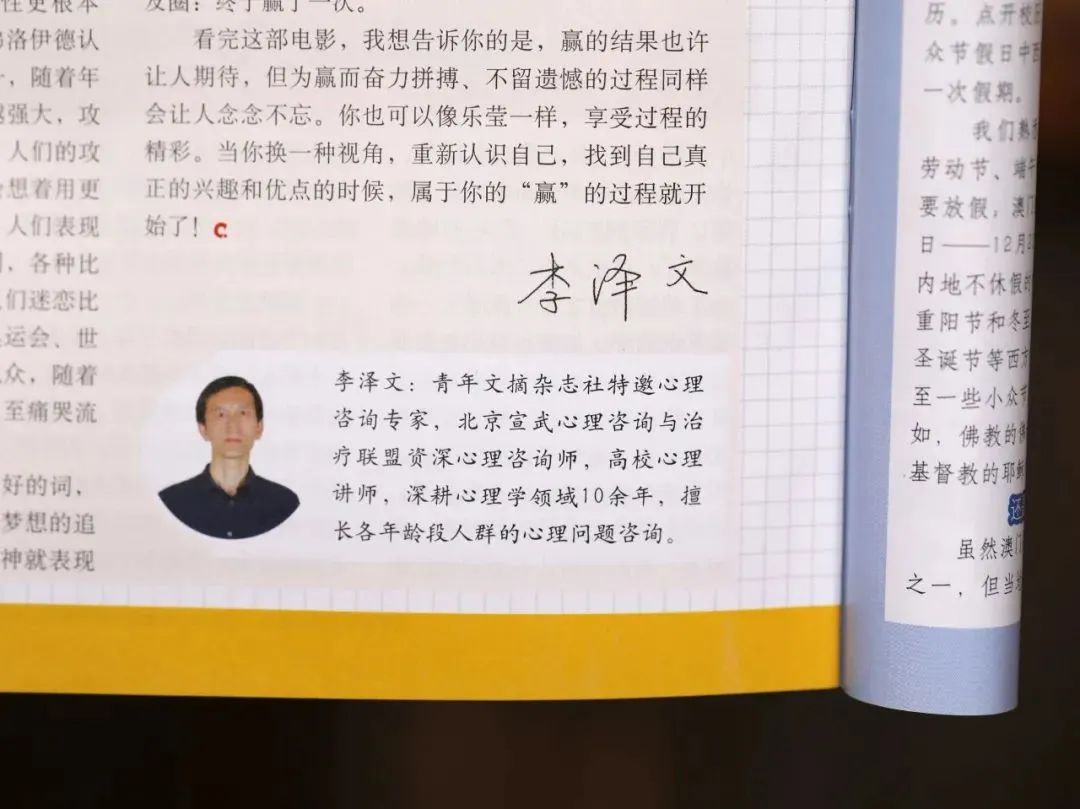 性更根本
弗洛伊德认
，随着年
越强大，攻
人们的攻
会想着用更
人们表现
，各种比
人们迷恋比
奥运会、世
众，随着
至痛哭流
好的词，
梦想的追
神就表现
友圈：终于赢了一次。
看完这部电影，我想告诉你的是，赢的结果也许
让人期待，但为赢而奋力拼搏、不留遗憾的过程同样
会让人念念不忘。你也可以像乐莹一样，享受过程的
精彩。当你换一种视角，重新认识自己，找到自己真
正的兴趣和优点的时候，属于你的“赢”的过程就开
始了！
李泽文
李泽文：青年文摘杂志社特邀心理
咨询专家，北京宣武心理咨询与治
疗联盟资深心理咨询师，高校心理
讲师，深耕心理学领域10余年，擅
长各年龄段人群的心理问题咨询。
历。点开校
众节假日中西
一次假期。
我们熟
劳动节、端午
要放假，澳门
日——12月2
内地不休假的
重阳节和冬至
圣诞节等西方
至一些小众节
如，佛教的佛
基督教的耶稣
还
虽然澳门
之一，但当